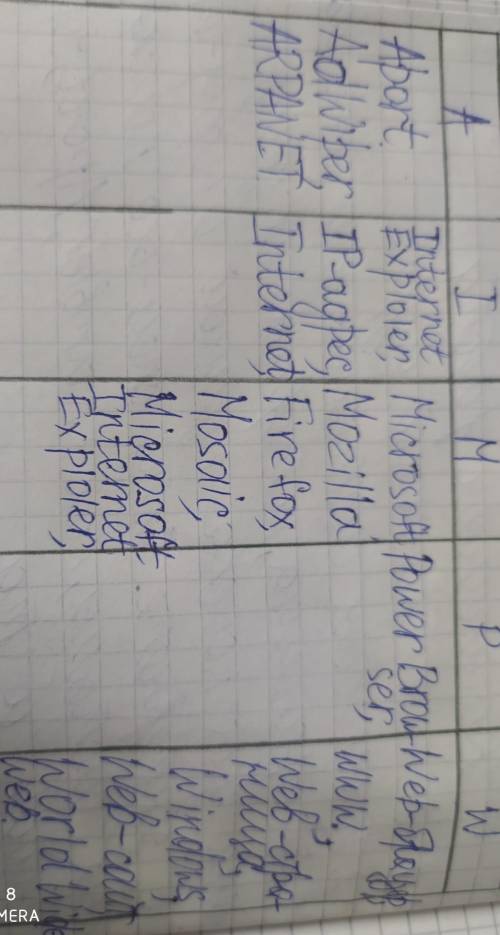 A
Aport,
AdWiper
ARPANET,
I
Internet
Exploler,
IP-адрес,
Internet,
M
Microsoft,
Mozilla
Firefox,
Mosaic,
Microsoft
Internet
Exploler,
P
Power Brow-
ser,
W
Web-брауз
WWW.
Web-стра-
ница,
Windows,
Web-сайт,
World Wide
Web.
8
MERA